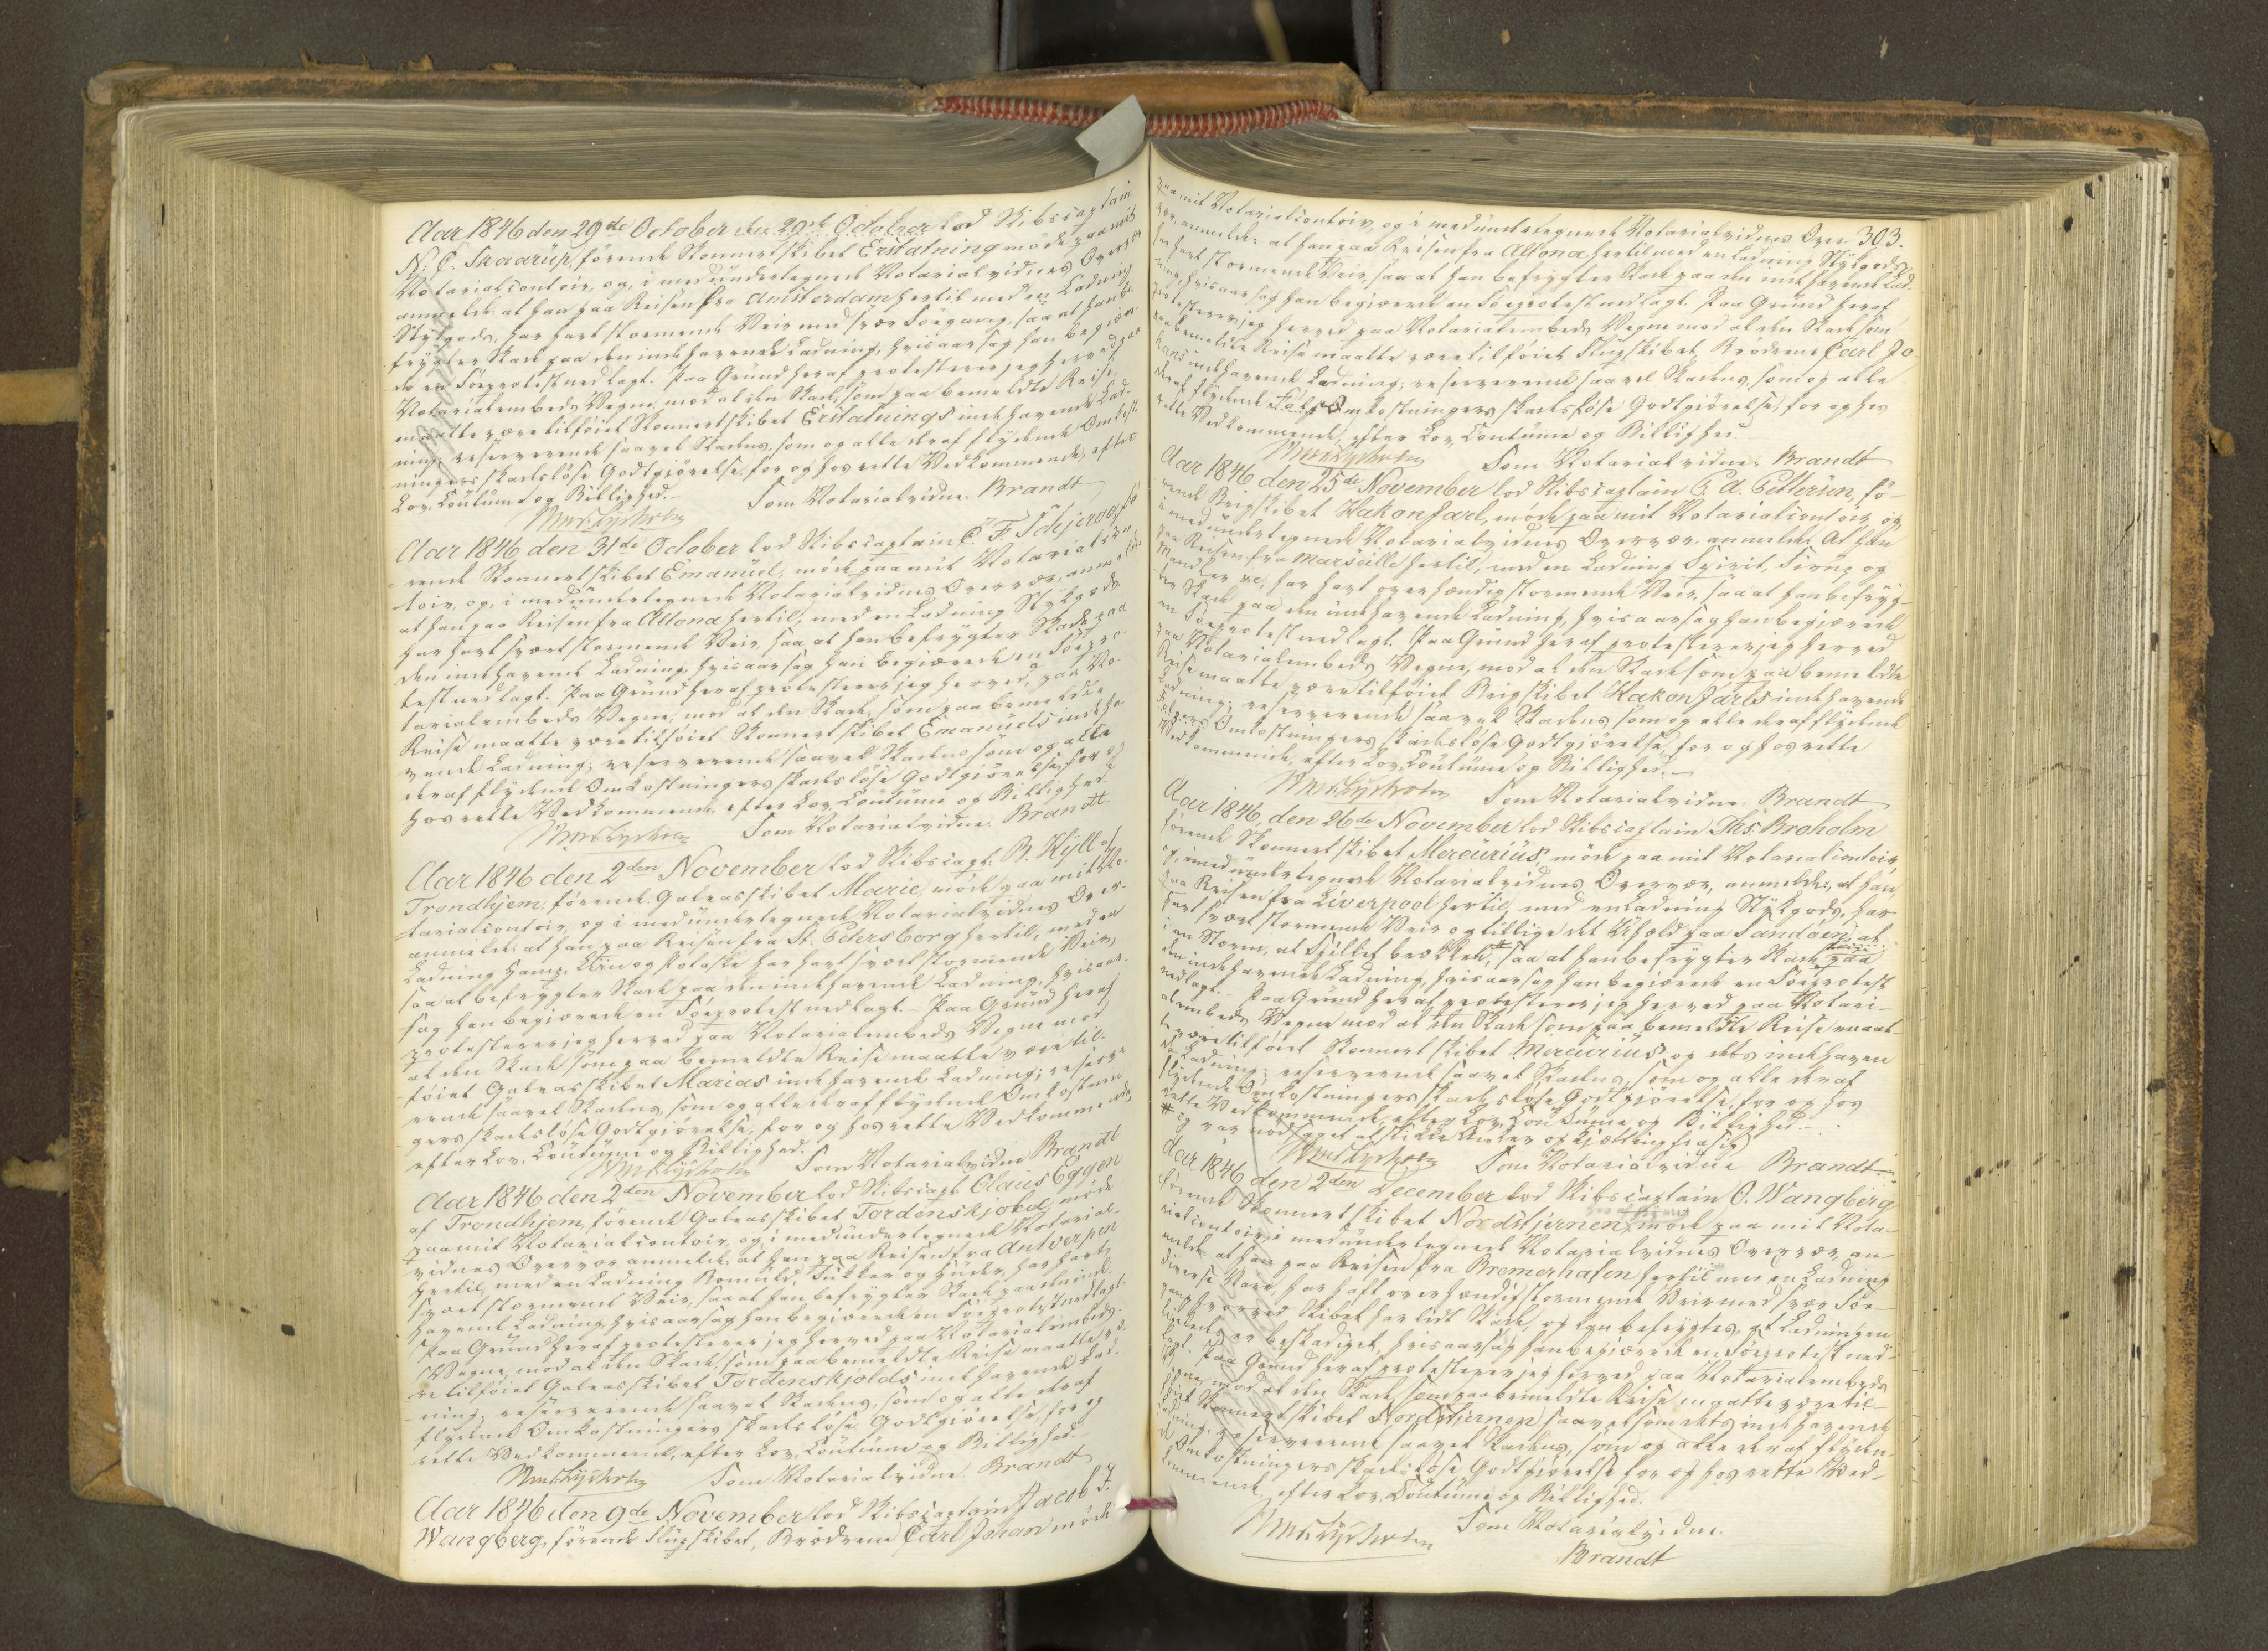 Aar 1846 den 29de October den 29de October lod Skibscaptain
N. C. Skaarup, førende Skonnertskibet Erstatning møde paa mit
Notarialcontoir, og, i medundertegnede Notarialvidnes Overvær
anmelde: at han paa Reisen fra Amsterdam hertil med en Ladning
Stykgods, har havt stormende Veir med svær Søegang, saa at han be-
frygter Skade paa den indehavende Ladning, hvisaarsag han begiær-
de en Søeprotest nedlagt. Paa Grund heraf protesterer jeg herved paa
Notarialembeds Vegne, mod al den Skade, som paa bemeldte Reise,
maatte være tilføiet Skonnertskibet Erstatnings indehavende Lad-
ning; reserverende saavel Skadens, som og alle deraf flydende Omkost-
ningers skadesløse Godtgiørelse, for og hos rette Vedkommende, efter
Lov, Coutume og Billighed.-
Som Notarialvidne. Brandt
Aar 1846 den 31de October lod Skibscaptain C. F. Schjervøe, fø
rende Skonnertskibet Emanuel, møde paa mit Notarialcon
toir, og, i medundertegnede Notarialvidnes Overvær, anmelde
at han paa Reisen fra Altona hertil, med en Ladning Stykgods
har havt svært stormende Veir, saa at han befrygter Skade paa
den indehavende Ladning, hvisaarsag han begiærede en Søepro-
test nedlagt. Paa Grund heraf protesterer jeg herved, paa No-
tarialembeds Vegne, mod al den Skade, som paa bemeldte
Reise maatte være tilføiet Skonnertskibet Emanuels indeha
vende Ladning; reserverende saavel Skadens som og alle
deraf flydende Omkostningers skadesløse Godtgiørelse, for og
hos rette Vedkommende, efter Lov, Coutume og Billighed.
Som Notarialvidne. Brandt.
Aar 1846 den 2den November lod Skibscapt: B. Hyll af
Trondhjem, førende Galeasskibet Marie, møde paa mit No-
tarialcontoir, og i medundertegnede Notarialvidnes Over-
anmelde: at han paa Reisen fra St. Petersborg hertil, med en
Ladning Hamp, Liin og Potaske har havt svært stormende Veir,
saa at befrygter Skade paa den indehavende Ladning, hvisaar-
sag han begiærede en Søeprotest nedlagt.- Paa Grund heraf
protesterer jeg herved paa Notarialembeds Vegne mod
al den Skade som paa bemeldte Reise maatte være til-
føiet Galeasskibet Maries indehavende Ladning; reserve
rende saavel Skadens, som og alle deraf flydende Omkostnin
gers skadesløse Godtgiørelse, for og hos rette Vedkommende,
efter Lov, Coutume og Billighed.
Som Notarialvidne Brandt
Aar 1846 den 2den November lod Skibscapt Claus Eggen
af Trondhjem, førende Galeasskibet Tordenskjold, møde
paa mit Notarialcontoir, og i medundertegnede Notarial-
vidnes Overvær anmelde, at han paa Reisen fra Antverpen
hertil, med en Ladning Bomuld, Sukker og Huder, har havt
svært stormende Veir, saa at han befrygter Skade paa den inde-
havende Ladning, hvisaarsag han begiærede en Søeprotest nedlagt.
Paa Grund heraf protesterer jeg herved paa Notarialembeds
Vegne, mod al den Skade, som paa bemeldte Reise maatte væ-
re tilføiet Galeasskibet Tordenskjolds indehavende Lad-
ning; reserverende saavel Skadens, som og alle deraf
flydende Omkostningers skadesløse Godtgiørelse, for og
rette Vedkommende, efter Lov, Coutume og Billighed.
Som Notarialvidne Brandt
Aar 1846 den 9de November lod Skibscaptain Jacob J.
Wangberg, førende Slupskibet, Brødrene Carl Johan møde
paa mit Notarialcontoir, og i medundertegnede Notarialvidnes Over- 303.
vær, anmelde: at han paa Reisen fra Altona hertil med en Ladning Stykgods
har havt stormende Veir, saa at han befrygter Skade paa den indehavende Lad-
ning, hvisaarsag han begiærede en Søeprotest nedlagt. Paa Grund heraf
protesterer jeg herved paa Notarialembeds Vegne mod al den Skade som
paa bemeldte Reise maatte være tilføiet Slupskibet Brødrene Carl Jo
hans indehavende Ladning; reserverende saavel Skadens, som og alle
deraf flydende Omkostningers skadesløse Godtgiørelse, for og hos
rette Vedkommende, efter Lov, Coutume og Billighed.-
Som Notarialvidne: Brandt
Aar 1846 den 25de November lod Skibscaptain P. A. Pettersen, fø-
rende Brigskibet Hakon Jarl, møde paa mit Notarialcontoir, og,
i medundertegnede Notarialvidnes Overvær, anmelde. At han
paa Reisen fra Marseille hertil, med en Ladning Spirit, Sirup og
Mandler &c, har havt overhændig stormende Veir, saa at han befryg-
ter Skade paa den indehavende Ladning, hvisaarsag han begiærede
en Søeprotest nedlagt. Paa Grund heraf protesterer jeg herved
paa Notarialembeds Vegne, mod al den Skade som paa bemeldte
Reise maatte være tilføiet Brigskibet Hakon Jarls indehavende
Ladning; reserverende saavel Skadens, som og alle deraf flydende
Følgers Omkostningers skadesløse Godtgjørelse, for og hos rette
Vedkommende, efter Lov, Coutume og Billighed.-
Som Notarialvidne: Brandt
Aar 1846, den 26de November lod Skibscaptain Ths. Broholm
førende Skonnertskibet Mercurius, møde paa mit Notarialcontoir,
og, i medundertegnede Notarialvidnes Overvær, anmelde, at han,
paa Reisen fra Liverpool hertil, med en Ladning Stykgods, har
havt svært stormende Veir og tillige det Uheld paa Sandøen, at
i en Storm, at Spillet brækkede,# saa at han befrygter Skade paa
den indehavende Ladning, hvisaarsag han begiærede en Søeprotest
nedlagt.- Paa Grund heraf protesterer jeg herved paa Notari-
alembeds Vegne mod al den Skade som paa bemeldte Reise maat
te være tilføiet Skonnertskibet Mercurius og dets indehaven
de Ladning; reserverende saavel Skadens, som og alle deraf
flydende Omkostningers skadesløse Godtgjørelse, for og hos
rette Vedkommende, efter Lov, Coutume og Billighed.-
# og var nødsaget at stikke Anker og Kjætting fra sig
Som Notarialvidne Brandt.
Aar 1846 den 2den December lod Skibscaptain O. Wangberg
førende Skonnertskibet Nordstjernen, møde paa mit Nota-
rialcontoir, i medundertegnede Notarialvidnes Overvær an-
melde: at han paa Reisen fra Bremerhafen hertil med en Ladning
diverse Vare har havt overhændig stormende Veir med svær Søe-
gang hvorved Skibet har lidt Skade, og kan befrygtes, at Ladningen
ligeledes er beskadiget, hvisaarsag han begiærede en Søeprotest ned-
lagt. Paa Grund heraf protesterer jeg herved, paa Notarialembeds
Vegne, mod al den Skade, som paa bemeldte Reise maatte være til-
føiet Skonnertskibet Nordstjernen, saavelsom dets indehavende
Ladning; reserverende saavel Skadens, som og alle deraf flyden
de Omkostningers skadesløse Godtgiørelse for og hos rette Ved-
kommende, efter Lov, Coutume og Billighed.
Som Notarialvidne.
Brandt